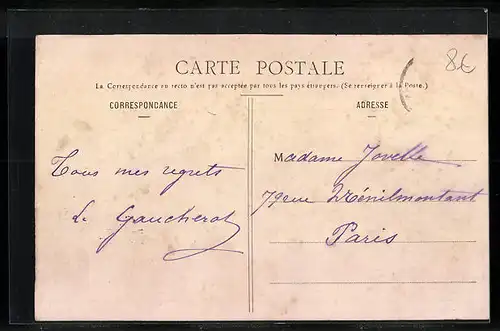 8€
CARTE POSTALE
La Correspondance au recto n'est pas acceptée par tous les pays étrangers. (Se renseigner à la Poste.)
CORRESPONDANCE
ADRESSE
Tous mes regrets
L. Gaucherot
Madame Jovelle
79 rue Ménilmontant
Paris